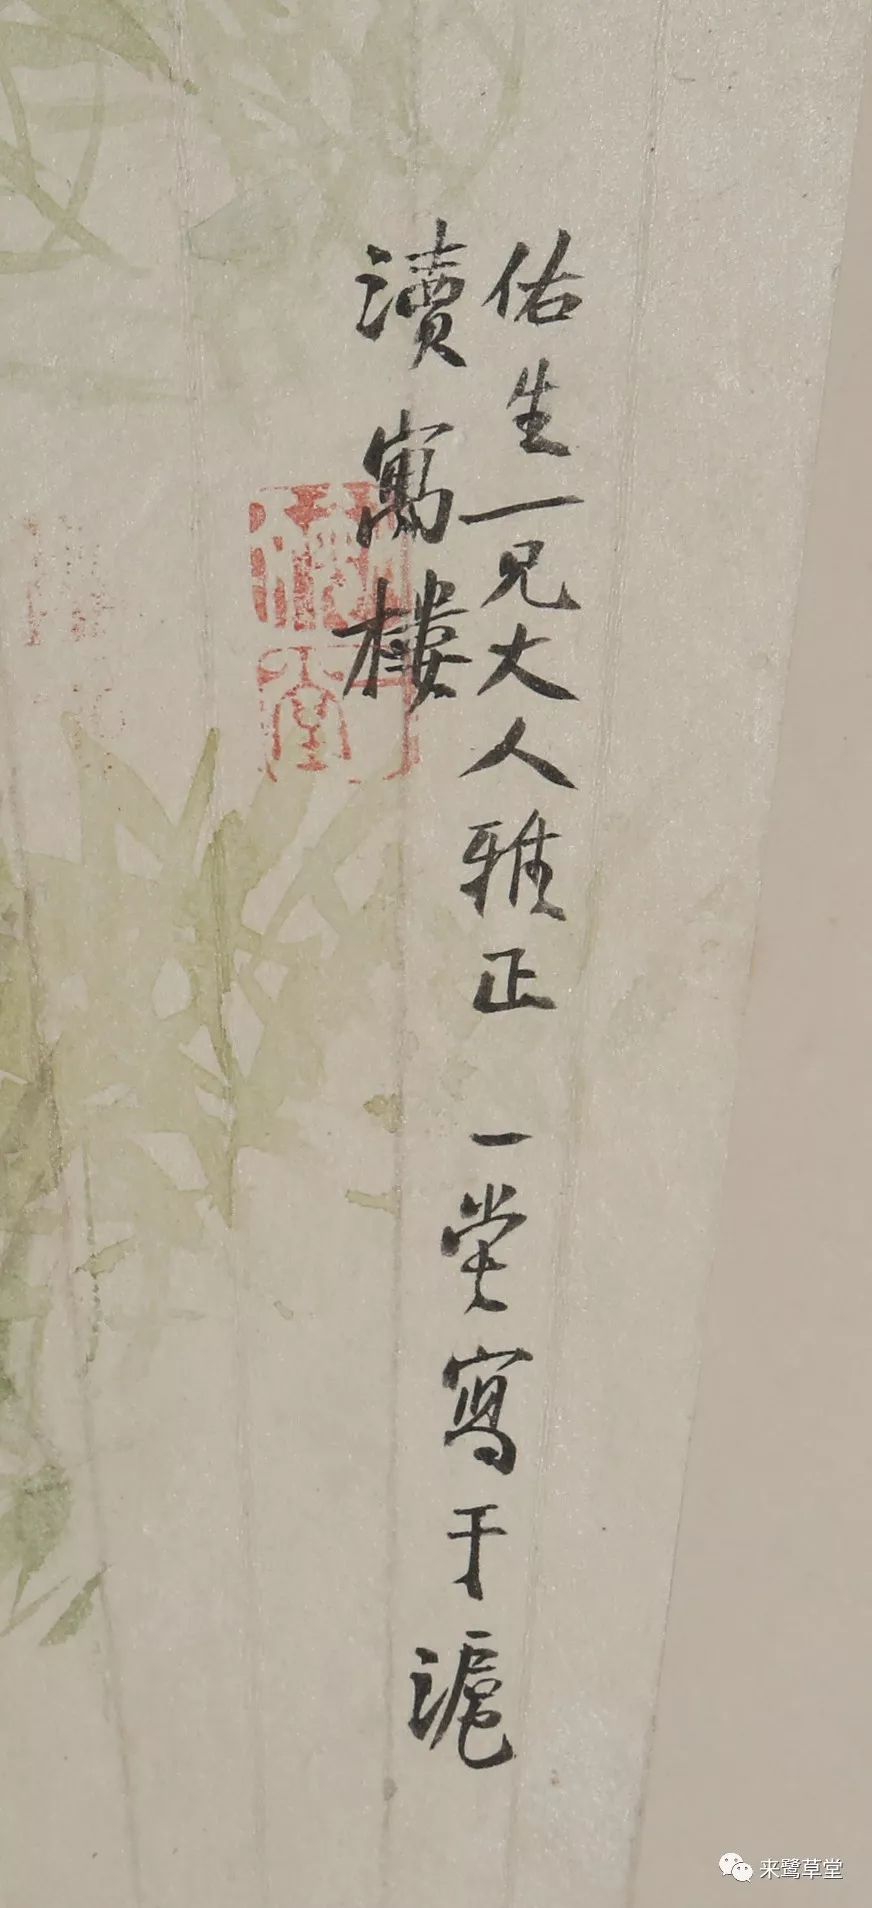 佑生一兄大人雅正 一崇寫于滬
瀆寓樓
来鹭草堂